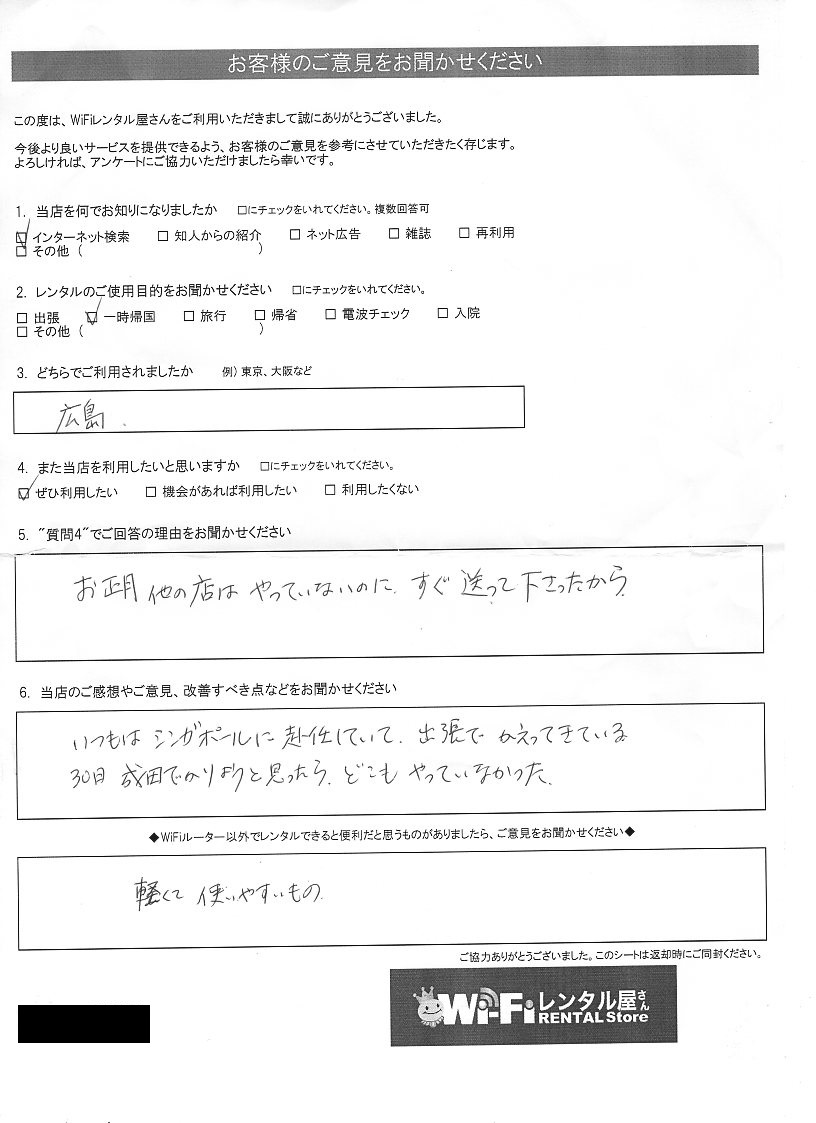 お客様のご意見をお聞かせください
この度は、WiFiレンタル屋さんをご利用いただきまして誠にありがとうございました。
今後より良いサービスを提供できるよう、お客様のご意見を参考にさせていただきたく存じます。
よろしければ、アンケートにご協力いただけましたら幸いです。
1. 当店を何でお知りになりましたか □にチェックをいれてください。複数回答可
☑ インターネット検索 □ 知人からの紹介 □ ネット広告 □ 雑誌 □ 再利用
□ その他 ( )
2. レンタルのご使用目的をお聞かせください □にチェックをいれてください。
□ 出張 ☑ 一時帰国 □ 旅行 □ 帰省 □ 電波チェック □ 入院
□ その他 ( )
3. どちらでご利用されましたか 例) 東京、大阪など
広島.
4. また当店を利用したいと思いますか □にチェックをいれてください。
☑ ぜひ利用したい □ 機会があれば利用したい □ 利用したくない
5. "質問4"でご回答の理由をお聞かせください
お正月 他の店は やっていないのに、すぐ 送って 下さったから
6. 当店のご感想やご意見、改善すべき点などをお聞かせください
いつもは シンガポールに 赴任していて、出張で かえってきている
30日 成田でかりようと思ったら、どこも やっていなかった、
◆WiFiルーター以外でレンタルできると便利だと思うものがありましたら、ご意見をお聞かせください◆
軽くて 使いやすいもの
ご協力ありがとうございました。このシートは返却時にご同封ください。
Wi-Fiレンタル屋さん
RENTAL Store